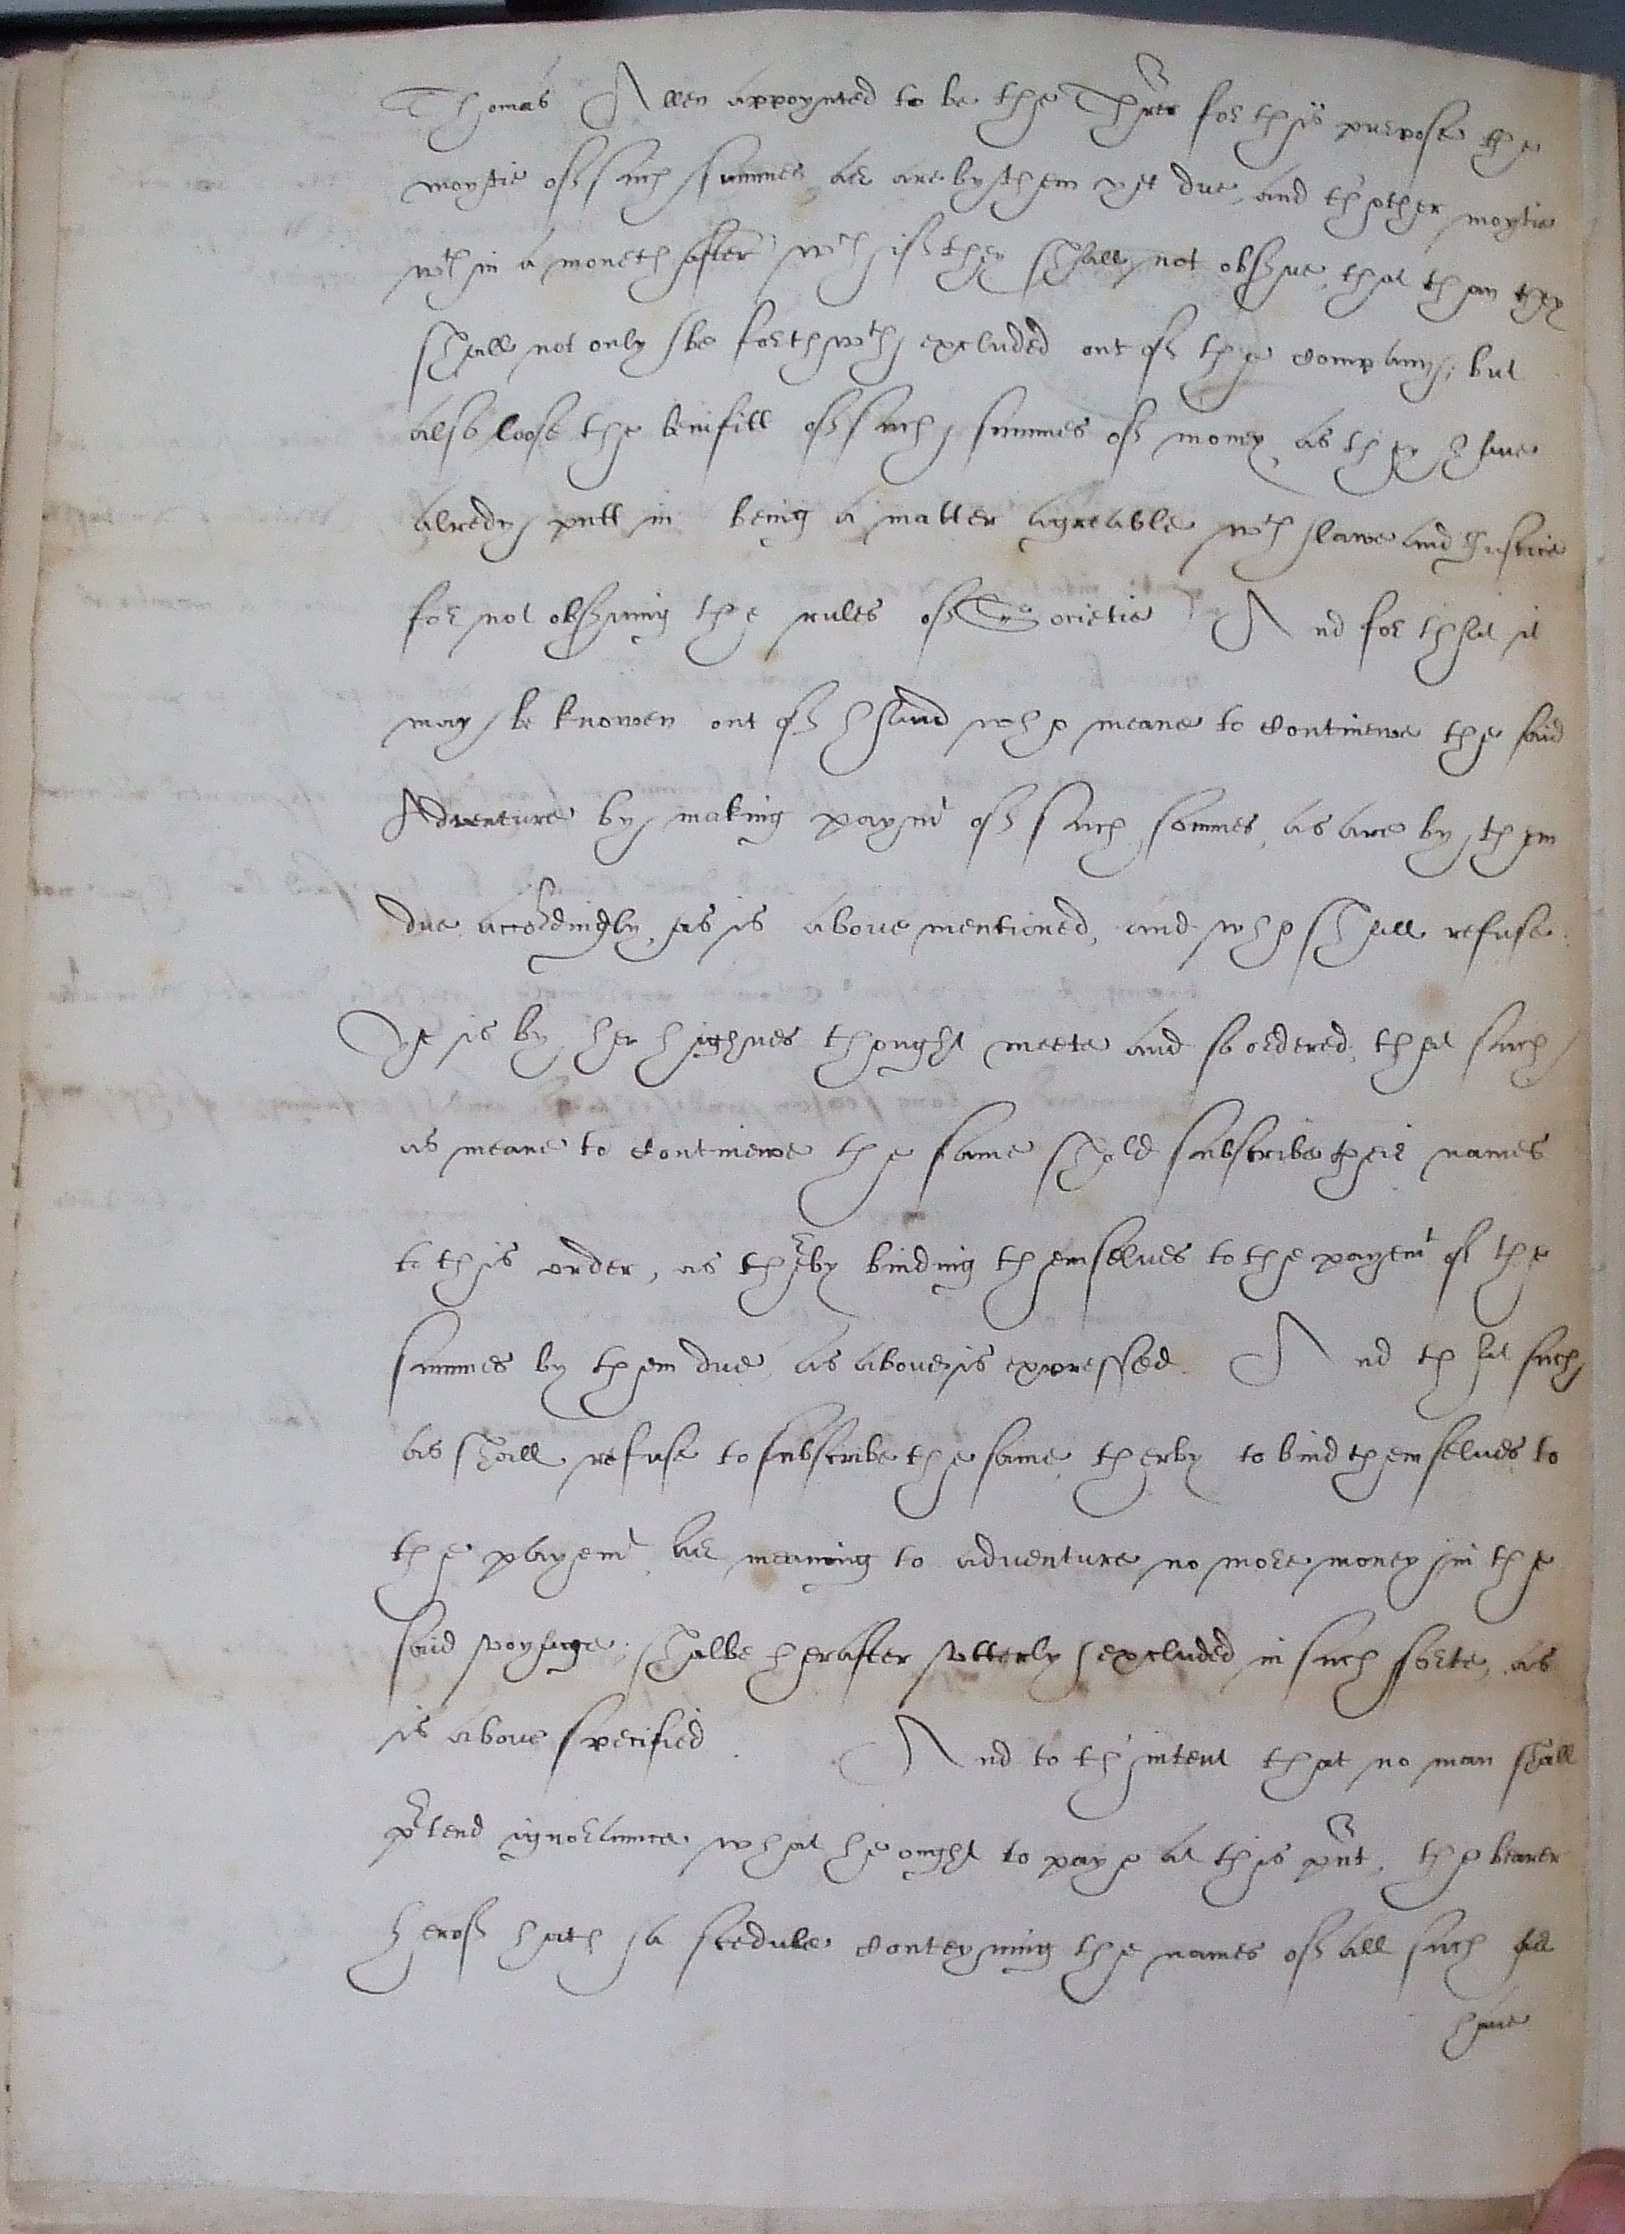 Thomas Allen appoynted to be the Threr for this purpose the
moytie of such summes as are by them yet due, and th'other moytie
wth in a moneth after wch if they shall not obserue, that than they
shall not only be forthwth excluded out of the Company, but
also loose the benifitt of such summes of money as they haue
alredy putt in being a matter agreable wth lawe and Justice
for not obseruing the rules of Societie And for that it
may be knowen out of hand who meane to Continewe the said
Adventure by making paymt of such sommes, as are by them
due accordingly, as is aboue mentioned, and who shall refuse.
Yt is by her highnes thought meete and so ordered, that such
as meane to Continewe the same shold subscribe their names
to this order, as therby binding themselues to the payemt of the
summes by them due, as aboue is expressed. And that such
as shall refuse to subscribe the same, therby to bind themselues to
the payemt as meaning to aduenture no more money in the
said voyage, shalbe herafter vtterly excluded in such sorte, as
is aboue specified. And to th'intent that no man shall
prtend ignoraunce what he ought to paye at this prnt, the bearer
herof hath a scedule Conteyning the names of all such as
haue